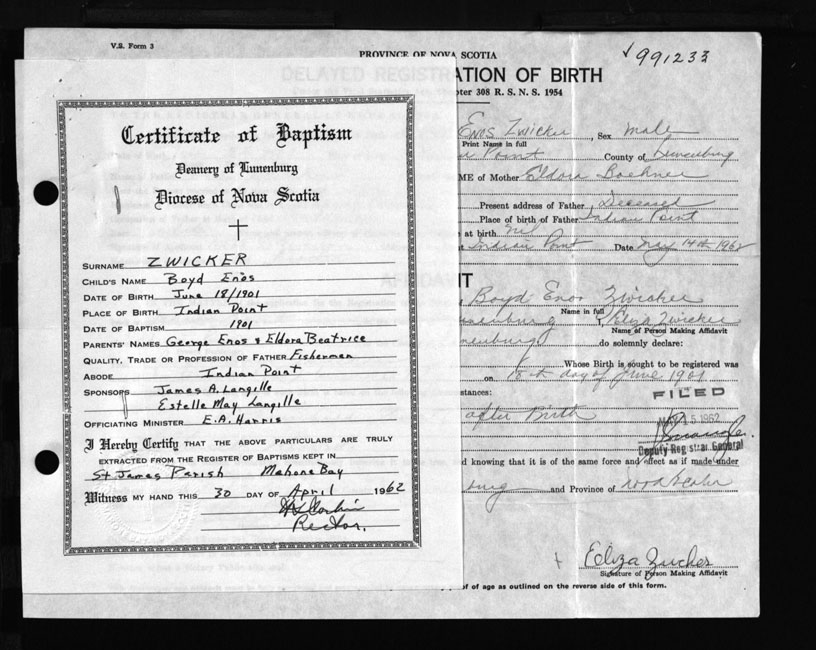 V.S. Form 3
PROVINCE OF NOVA SCOTIA
√991233
DELAYED REGISTRATION OF BIRTH
308 R. S. N. S. 1954
Certificate of Baptism
Deanery of Lunenburg
Diocese of Nova Scotia
SURNAME ZWICKER
CHILD'S NAME Boyd Enos
DATE OF BIRTH June 18/1901
PLACE OF BIRTH Indian Point
DATE OF BAPTISM 1901
PARENTS' NAMES George Enos & Eldora Beatrice
QUALITY, TRADE OR PROFESSION OF FATHER Fisherman
ABODE Indian Point
SPONSORS James A. Langille
Estelle May Langille
OFFICIATING MINISTER E.A. Harris
I Hereby Certify THAT THE ABOVE PARTICULARS ARE TRULY
EXTRACTED FROM THE REGISTER OF BAPTISMS KEPT IN
St James Parish Mahone Bay
Witness MY HAND THIS 30 DAY OF April 1962
Rector.
Enos Zwicker, Sex male
Print Name in full
Point County of Lunenburg
ME of Mother Eldora Boehner
Present address of Father Deceased
Place of birth of Father Indian Point
at birth nil
Indian Point Date May 14th 1962
IT
Boyd Enos Zwicker
Name in full
I, Eliza Zwicker
Name of Person Making Affidavit
do solemnly declare:
Whose Birth is sought to be registered was
on 18th day of June 1901
stances:
after Birth
FILED
MAY 15 1962
Deputy Registrar General
nd knowing that it is of the same force and effect as if made under
and Province of Nova Scotia
Eliza Zwicker
Signature of Person Making Affidavit
of of age as outlined on the reverse side of this form.